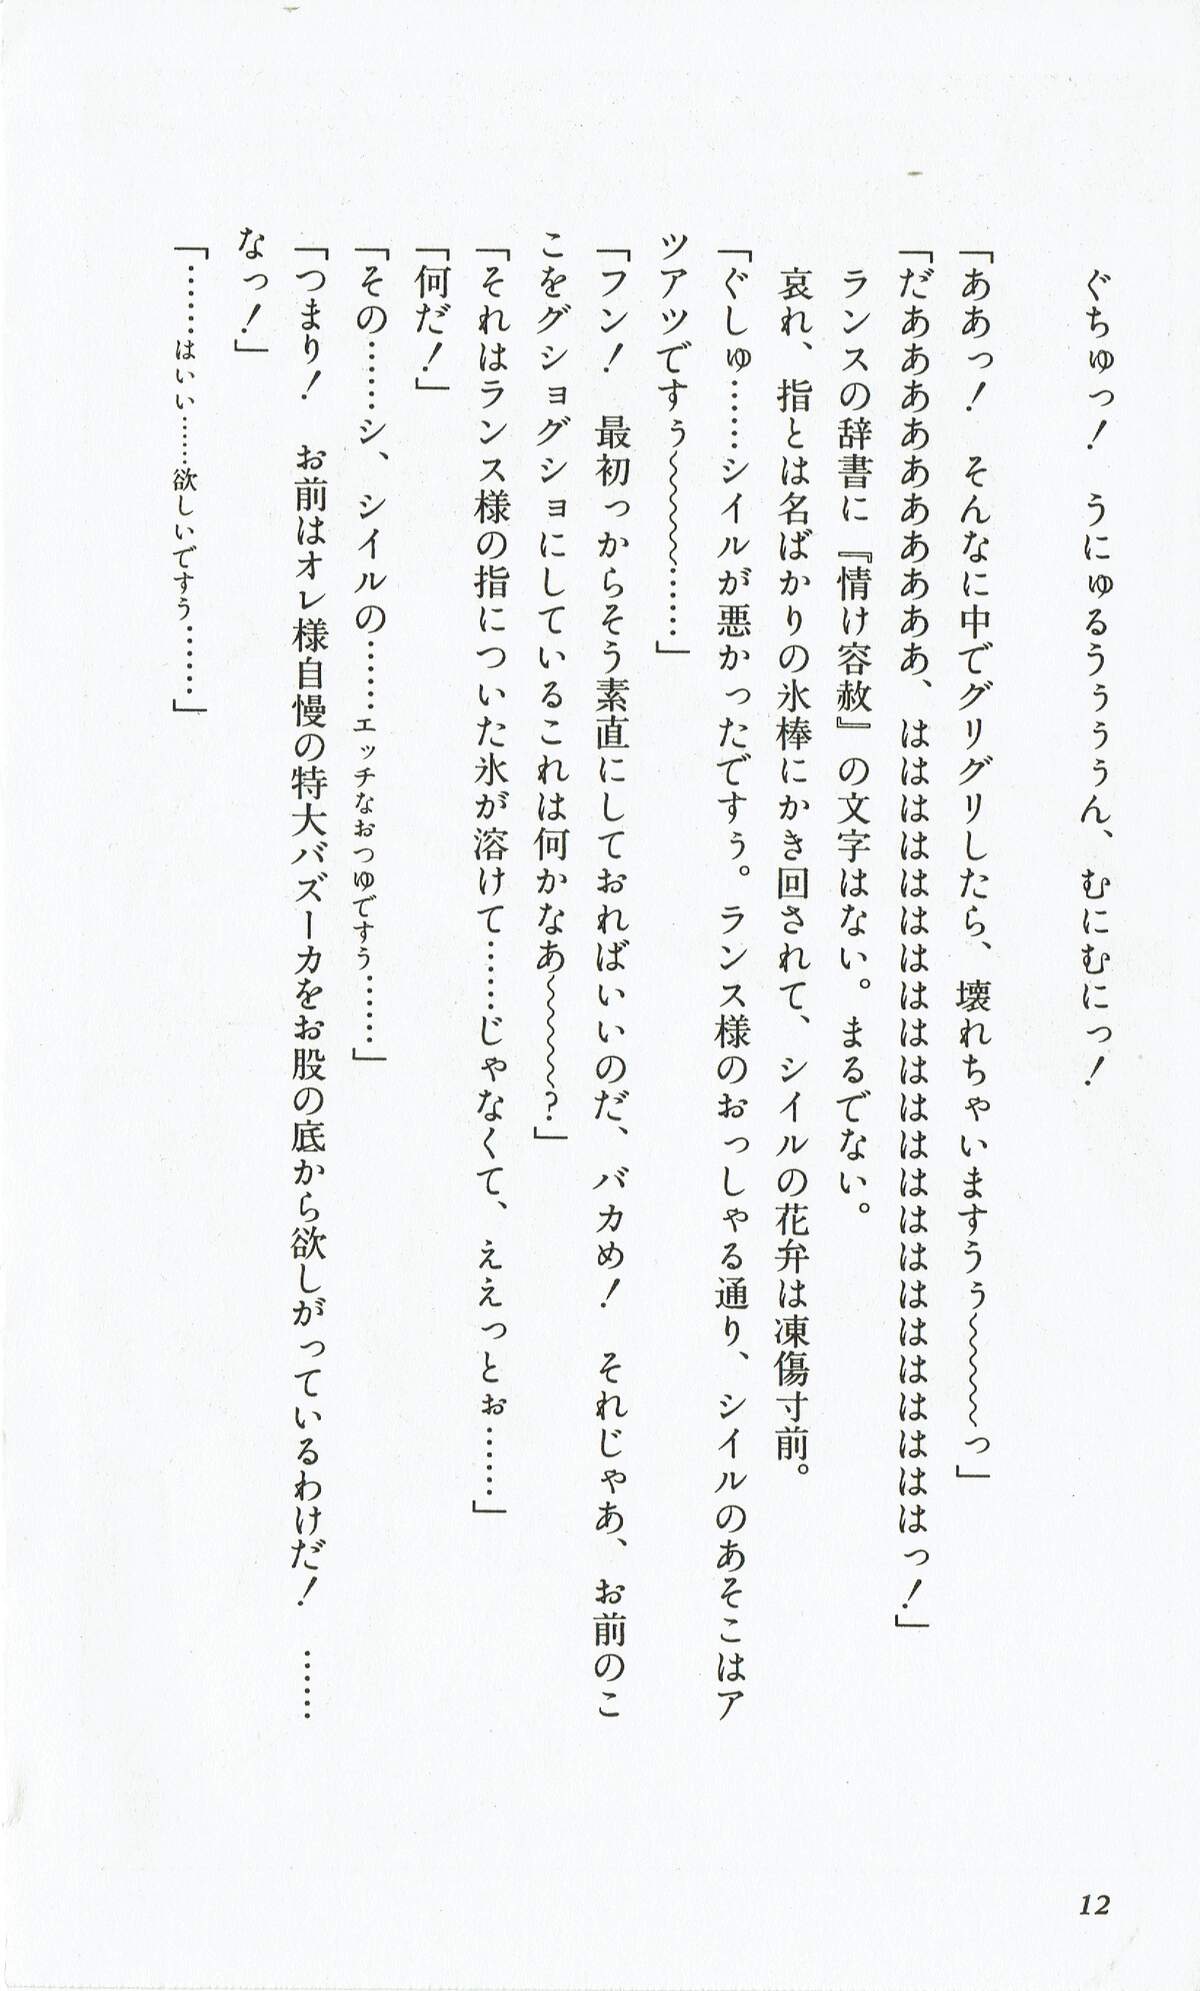 ぐちゅっ！　うにゅるうぅぅん、むにむにっ！
「ああっ！　そんなに中でグリグリしたら、壊れちゃいますうぅ～～～～っ」
「だあああああああああ、はははははははははははははははははははははっ！」
ランスの辞書に『情け容赦』の文字はない。まるでない。
哀れ、指とは名ばかりの氷棒にかき回されて、シイルの花弁は凍傷寸前。
「ぐしゅ……シイルが悪かったですぅ。ランス様のおっしゃる通り、シイルのあそこはア
ツアツですぅ～～～～……」
「フン！　最初っからそう素直にしておればいいのだ、バカめ！　それじゃあ、お前のこ
こをグショグショにしているこれは何かなあ～～～～？」
「それはランス様の指についた氷が溶けて……じゃなくて、ええっとぉ……」
「何だ！」
「その……シ、シイルの……エッチなおつゆですぅ……」
「つまり！　お前はオレ様自慢の特大バズーカをお股の底から欲しがっているわけだ！　……
なっ！」
「……はいい……欲しいですぅ……」
12